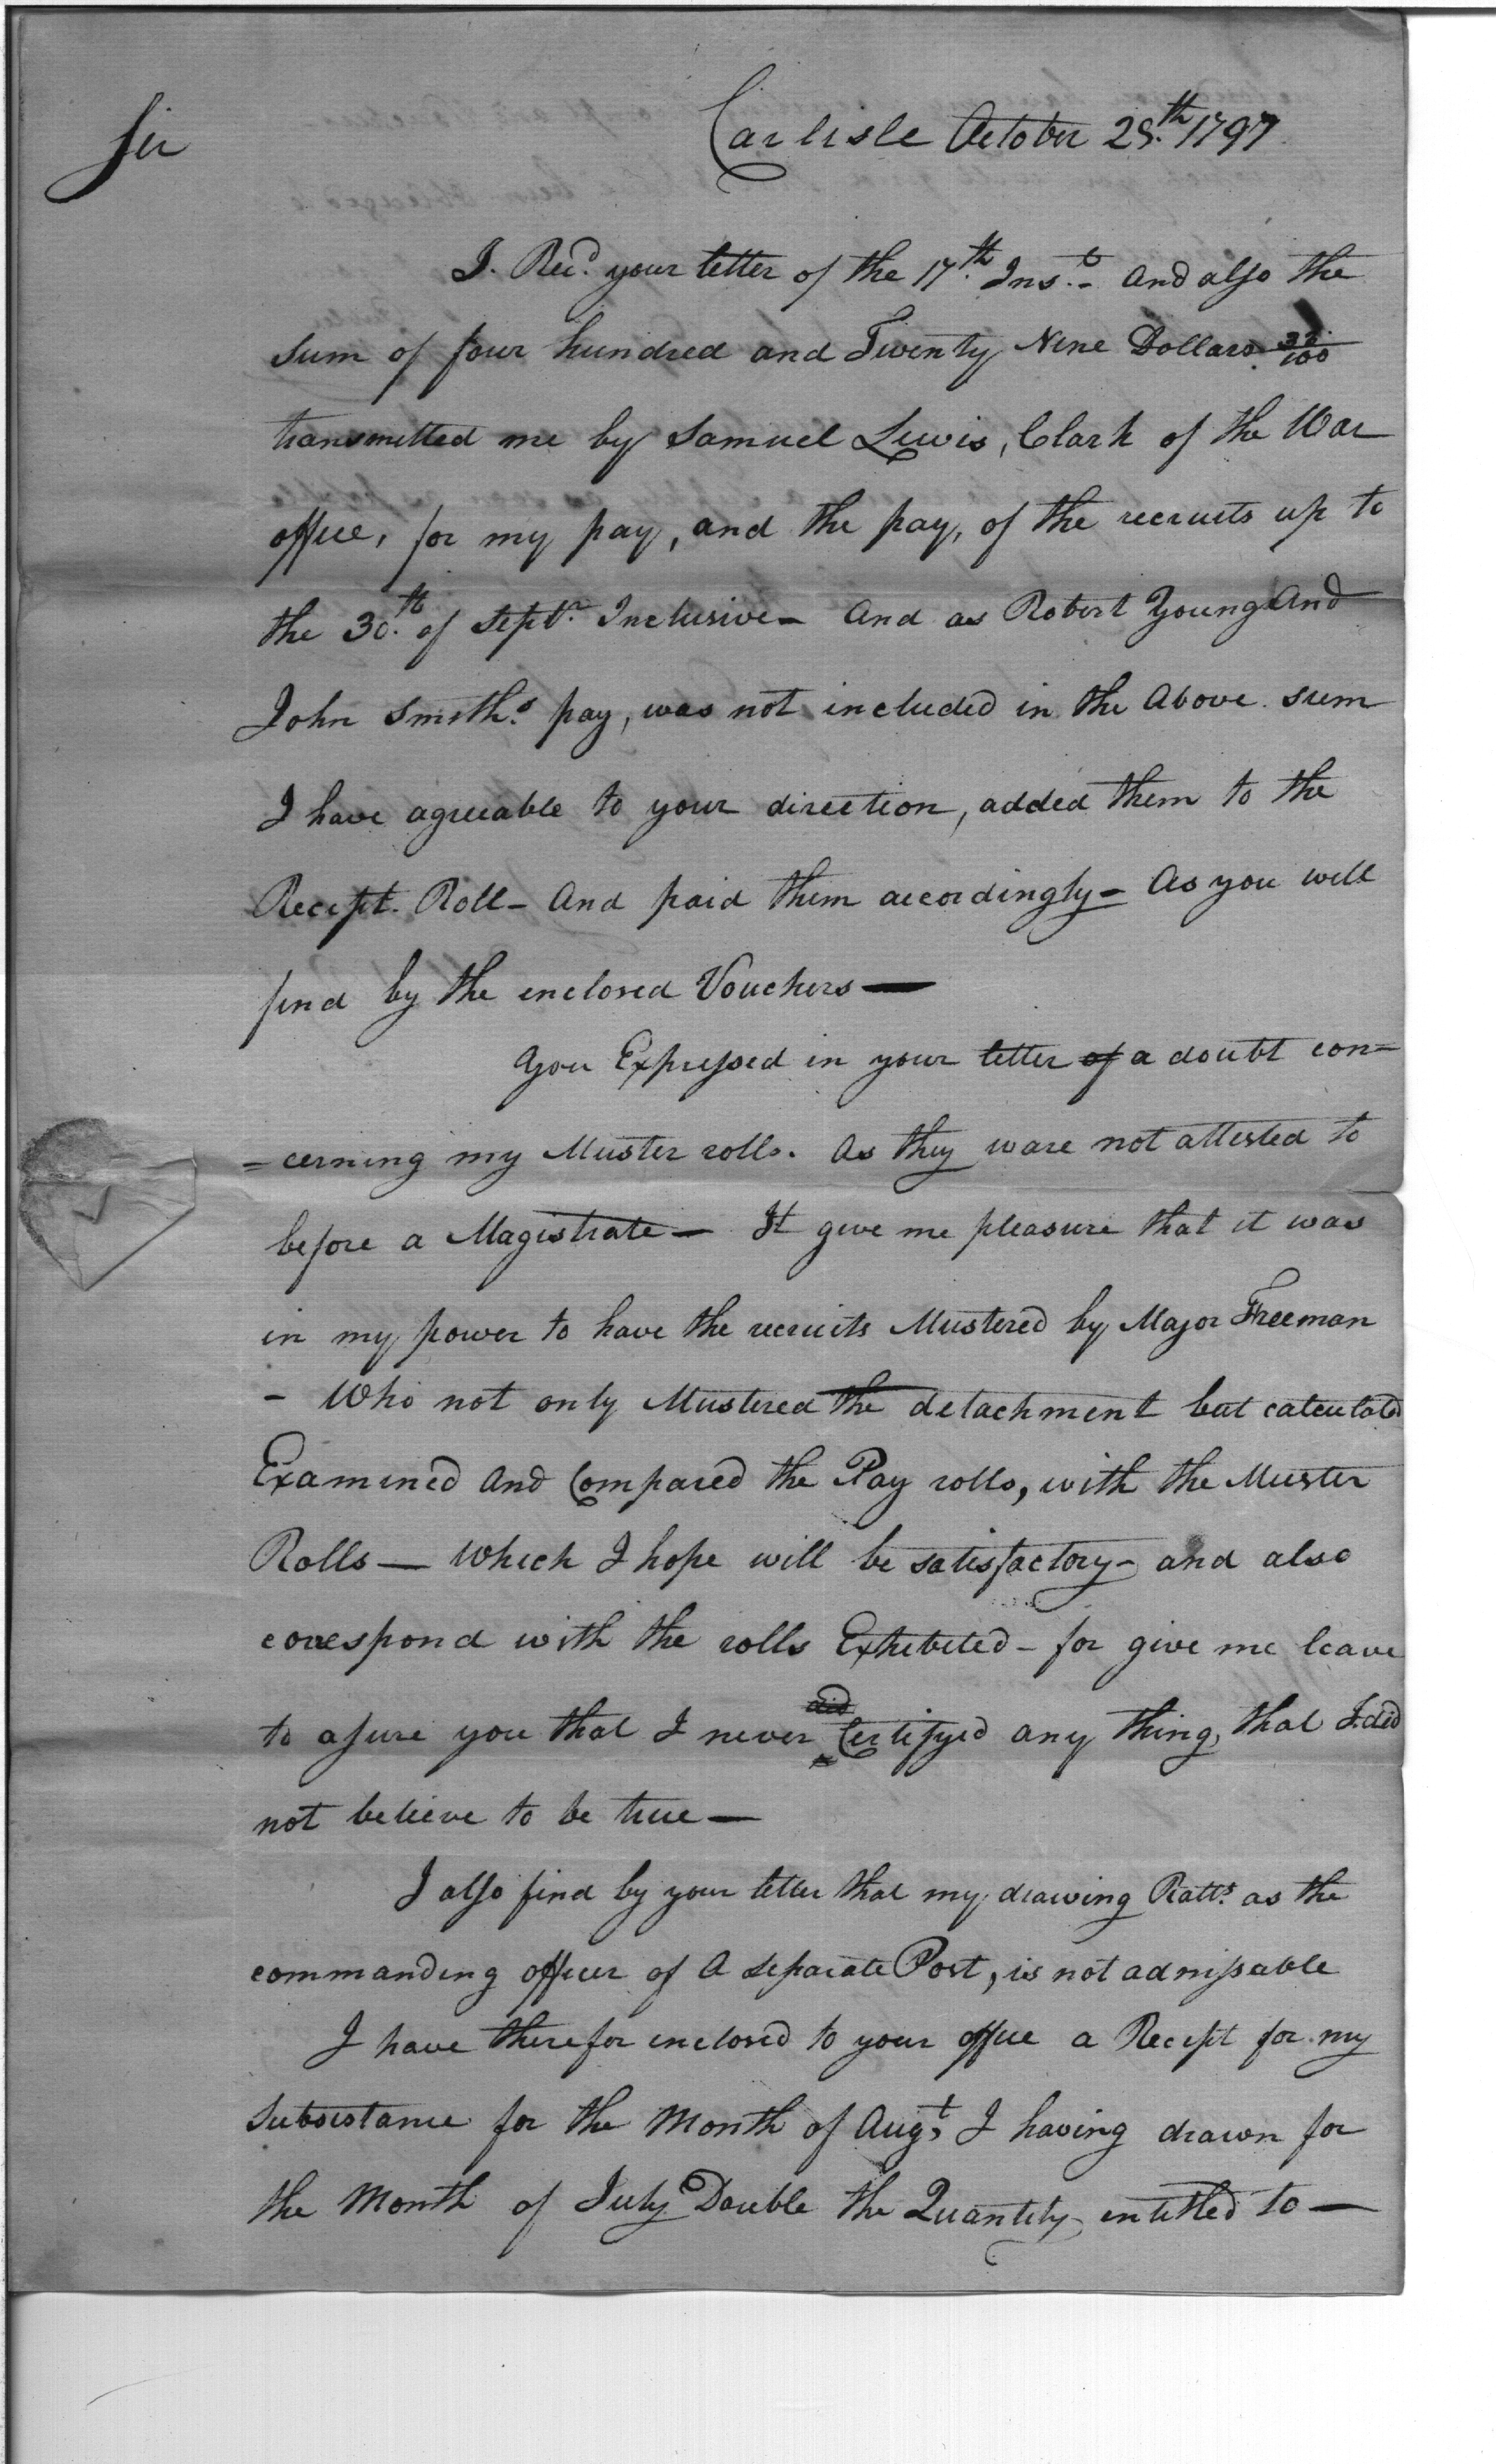 Sir
Carlisle October 28.th 1797
I. Recd. your letter of the 17.th Inst. - And also the
sum of four hundred and Twenty Nine Dollars 33/100
transmitted me by Samuel Lewis, Clark of the War
office, for my pay, and the pay, of the recruits up to
the 30.th of Septr. Inclusive - And as Robert Young And
John Smith.s pay, was not included in the Above sum
I have agreeable to your direction, added them to the
Recept. Roll - And paid them accordingly - As you will
find by the enclosed Vouchers —
You Expressed in your letter of a doubt con=
=cerning my Muster rolls. As they ware not attested to
before a Magistrate — It give me pleasure that it was
in my power to have the recruits Mustered by Major Freeman
- Who not only Mustered the detachment but calculated
Examined And Compared the Pay rolls, with the Muster
Rolls — Which I hope will be satisfactory - and also
correspond with the rolls Exhibeted - for give me leave
to assure you that I never did Certifyed any thing, that I did
not believe to be true —
I also find by your letter that my drawing Ratts. as the
commanding officer of A separate Post, is not admissable
I have therefor enclosed to your office a Recept for my
Subsistance for the Month of Augt, I having drawn for
the Month of July Double the Quantity entitled to —